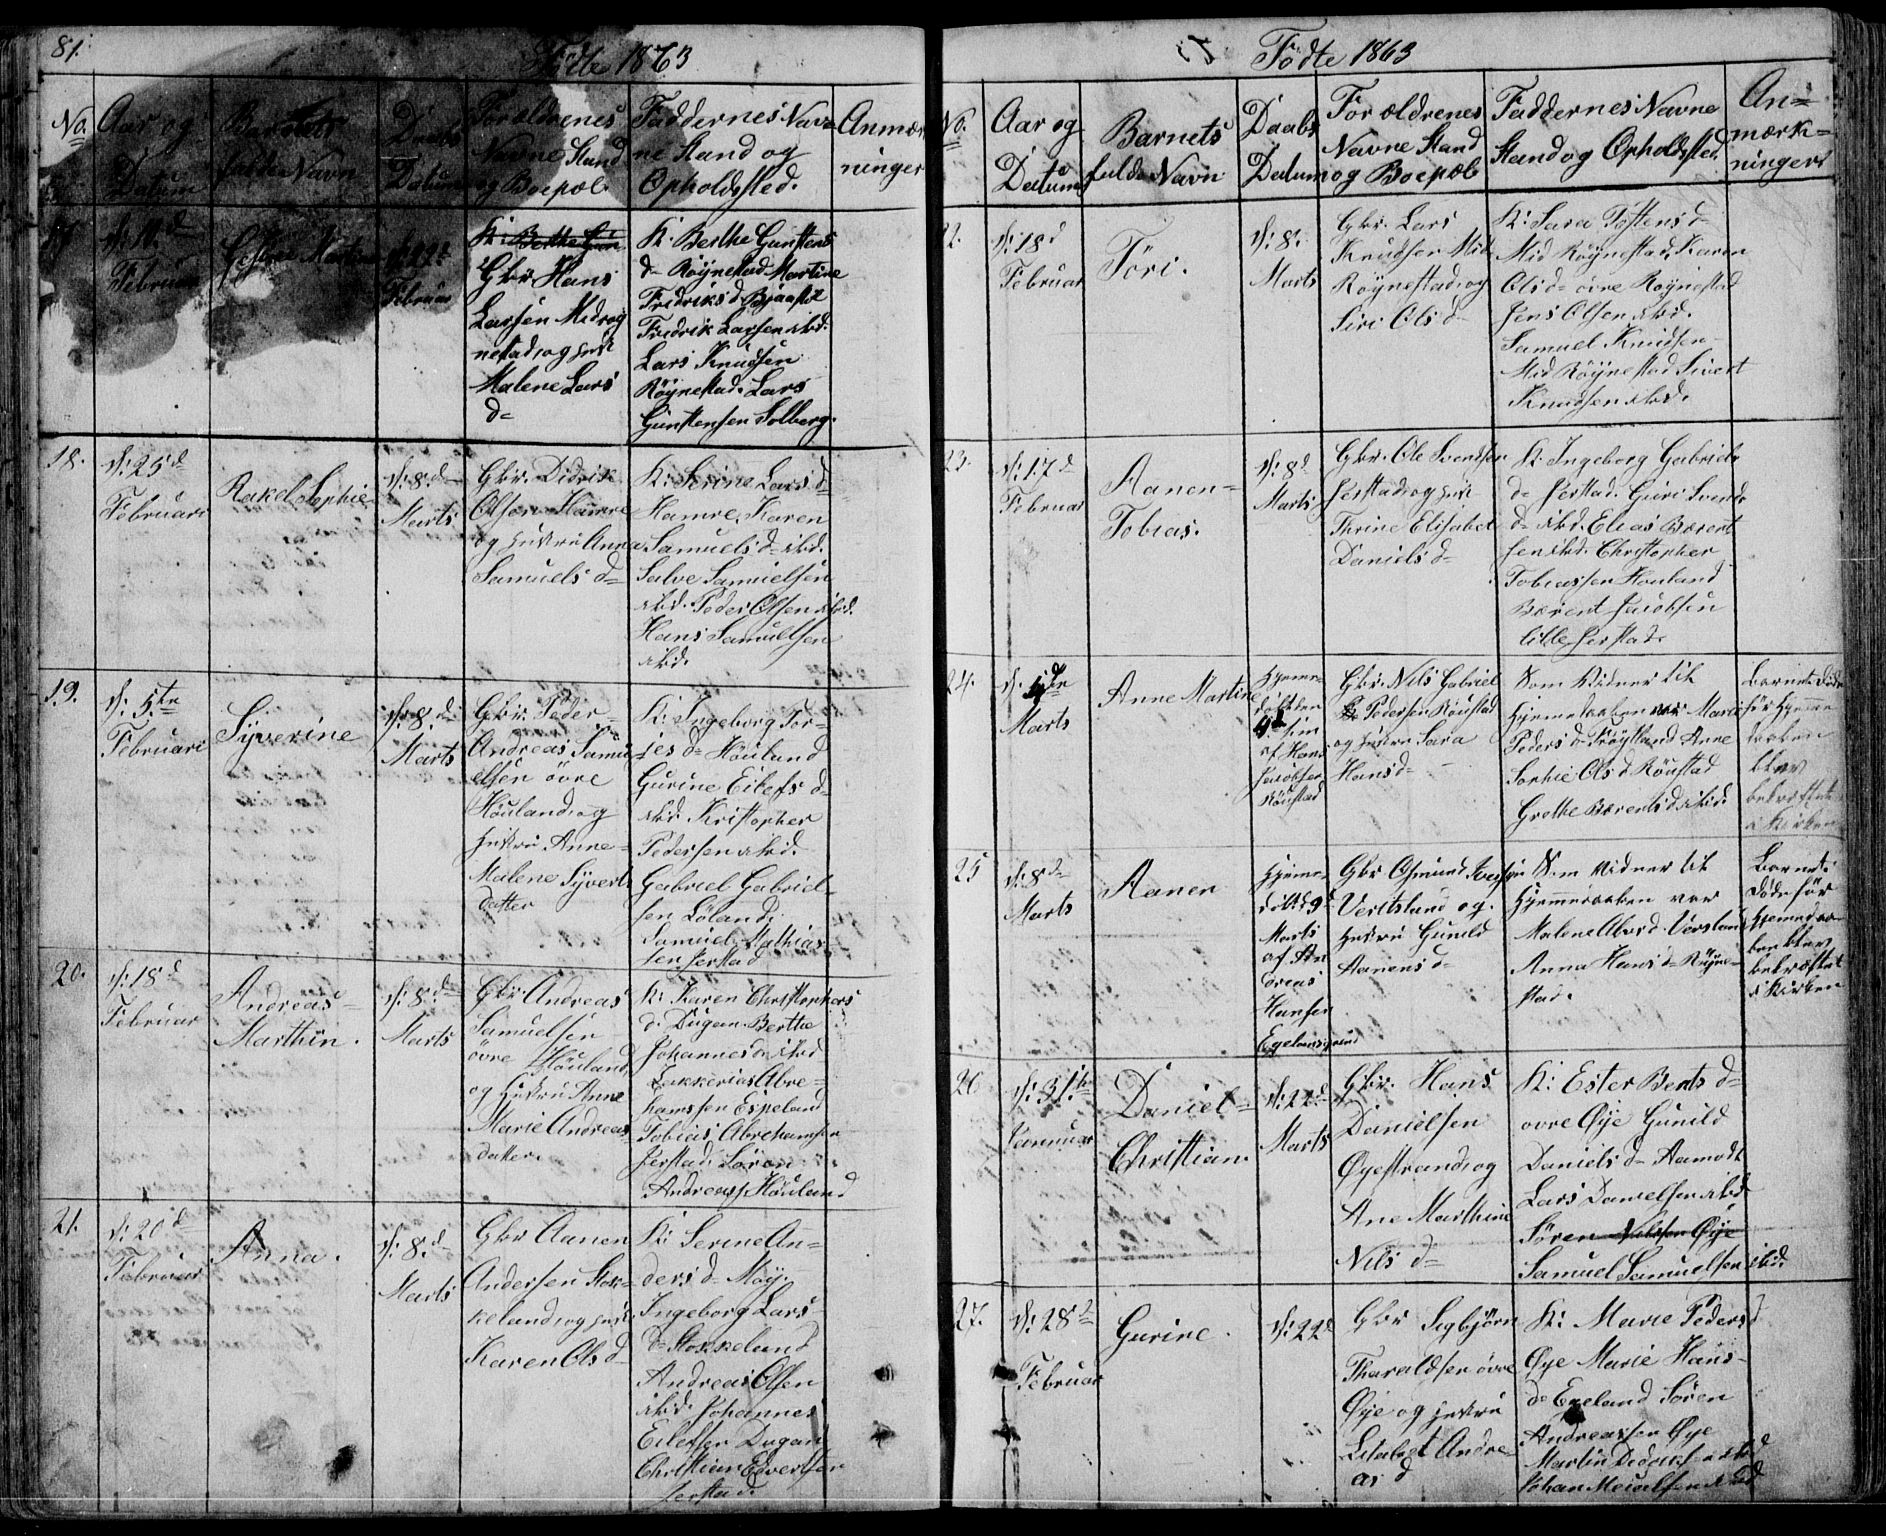 81.
Födte 1863
No.
Aar og
Datum
Barnets
fulde Navn
Daabs
Datum
Forældrenes
Navne Stand
og Boepæl
Faddernes Nav-
ne Stand og
Opholdssted.
Anmær
ninger
17
d: 11d
Februar
Februar
K: Berthe Gun
Gbr Hans
Larsen Midrøy
nestad og
Malene Lars
d=
K: Berthe Gunstens
d= Røynestad Martine
Fridriks d
Fredrik Larsen ibid.
Lars Knudsen
Røynestad. Lars
Gunstensen Solberg.
18.
d: 25d
Februari
Rakel Sophie
d: 8.d
Marts
Gbr. Didrik
Olsen Hamre
og hustru Anna
Samuels d=
K: Serine Lars d=
Hamre, Karen
Samuels d= ibd.
Salve Samuelsen
ibd. Peder Olsen ibd.
Hans Samuelsen
ibd.
19.
d: 5te
Februari
Syverine
d: 8.d
Marts
Gbr. Peder
Andreas Samu
elsen övre
Höuland og
hustru Anne
Malene Syverts
datter
K: Ingeborg Tor-
jes d= Höuland
Gurine Eilefs d=
ibd Kristopher
Pedersen ibid.
Gabriel Gabriel-
sen Löland,
Samuel Mathias
sen Jerstad
20.
d: 18d
Februar
Andreas=
Marthin.
d: 8.d
Marts
Gbr Andreas
Samuelsen
övre Höuland
og Hustru Anne
Marie Andreas
datter.
K: Karen Christophers
d. Dugan. Berthe
Johannes d= ibid
Zakkerias Abre=
hamssen Espeland
Tobias Abrehamsen
Jerstad. Sören
Andreass. Höuland
21.
d: 20d
Februar
Anna.
d: 8.d
Marts
Gbr Aanen
Andersen Stok-
keland og hust
Karen Ols d
K: Serine An=
ders d= Møy.
Ingeborg Lars
d= Stokkeland
Andreas Olsen
ibd. Johannes
Eilefsen Dugan
Christian Eivertsen
Jerstad.
Födte 1863
No.
Aar og
Datum
Barnets
fulde Navn
Daabs
Datum
Forældrenes
Navne Stand
og Boepæl
Faddernes Navne
Stand og Opholdssted.
An=
mærk=
ninger
22.
d: 18d
Februar
Töri.
d: 8.
Marts
Gbr. Lars
Knudsen Mid
Røynestad og
Siri Ols d
K: Sara Tostens d
Mid Røynestad, Karen
Ols d= övre Røynestad
Jens Olsen ibd.
Samuel Knudsen
Mid Röynestad Sivert
Knudsen ibd.
23.
d: 17d
Februar
Aanen=
Tobias.
d: 8d
Marts
Gbr. Ole Svendsen
Jerstad og hust
Thrine Elisabet
Daniels d=
K: Ingeborg Gabriels
d= Jerstad. Guri Svends
d= ibd. Elias Bærent
sen ibd. Christopher
Tobiassen Höuland
Bærent Jacobsen
lille Jerstad.
24.
Marts
Anne Martine
Hjemme
döbt den
af Hans
Jacobsen
Röustad
Gbr. Nils Gabriel
Pedersen Röustad
og hustru Sara
Hans d=
Som Vidner til
Hjemedaaben var Marie
Peders d= Frøytland Anne
Sophie Ols d Röustad
Grethe Bærents d. ibid.
barnet döde
för Hjeme
daaben
blev
bekræftet
i Kirken
25
d: 8d
Marts
Aanen
Hjeme-
döbt d 9
Marts
af An
dreas
Hansen
Gbr Osmund
og
hustru Gunild
Aanens d=
Som Vidner til
Hjemmedaaben var
Malene Abra d.
Anna Hans d= Røyne=
stad.
Barnet
döde för
Hjemedaa
ben blev
bekræftet
i Kirken
26
d: 31te
Januar
Daniel=
Christian.
d: 22d
Marts
Gbr. Hans
Danielsen
Øyestrand, og
Ane Marthine
Nils d=
K: Ester Bents d=
ovre Øye Gunild
Daniels d= Aamodt
Lars Danielsen ibd
Sören Nilssen Øye
Samuel Samuelsen ibd.
27.
d: 28d
Februar
Gurine.
d: 22d
Gbr Sigbjörn
Tharaldsen övre
Øye og hustru
Lisabet Andre
as d
K: Marie Peders d
Øye Marie Hans-
d= Egeland Sören
Andreassen Øye